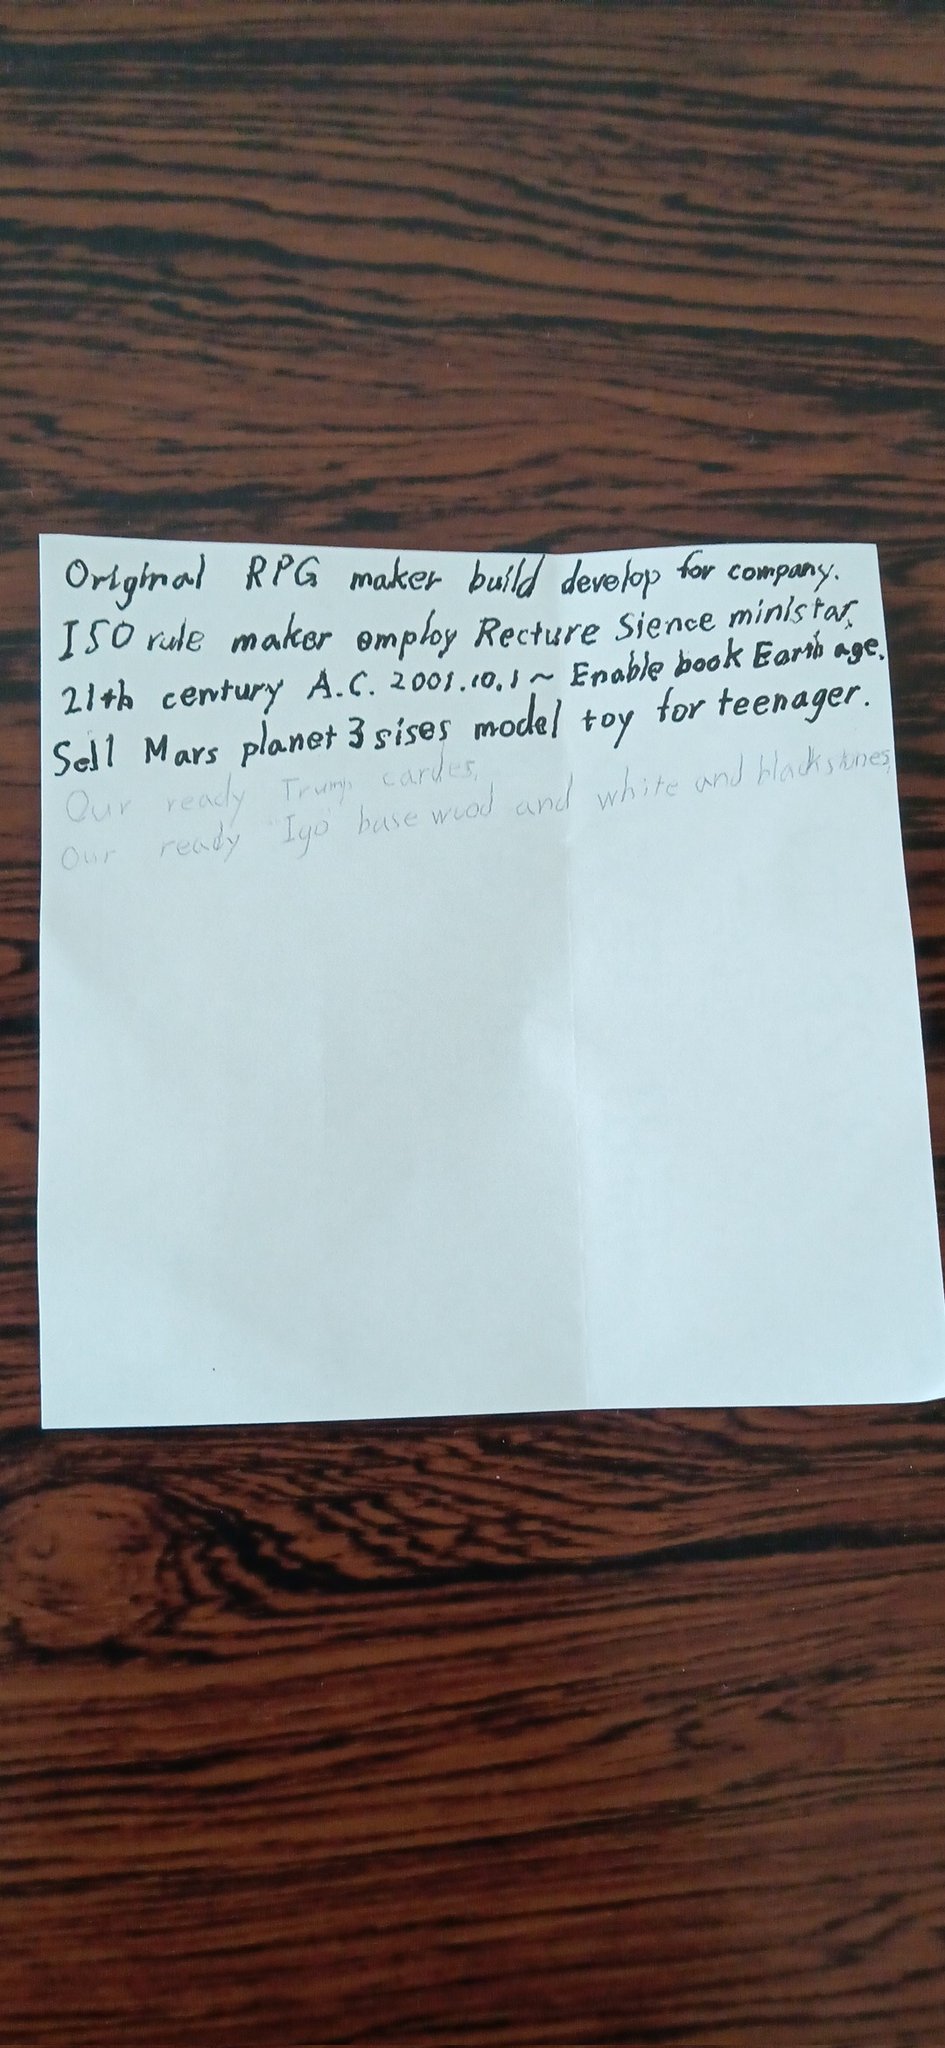 Original RPG maker build develop for company.
ISO rule maker employ Recture Sience ministar.
21th century A.C. 2001.10.1~ Enable book Earth age.
Sell Mars planet 3 sises model toy for teenager.
Our ready Trump cardes.
Our ready Igo base wood and white and black stones.